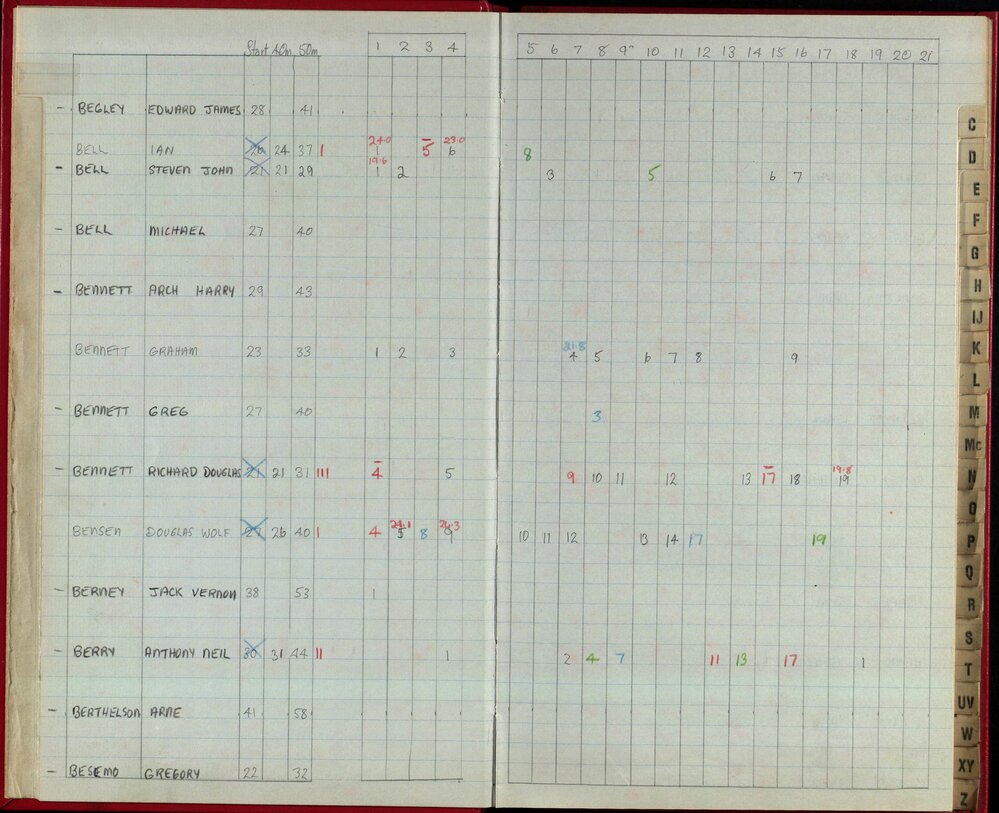 Start 40m 50m 1 2 3 4 5 6 7 8 9 10 11 12 13 14 15 16 17 18 19 20 21
- BEGLEY EDWARD JAMES 28 41
BELL IAN 26 24 37 I 24.0 1 5 23.0 6 8
- BELL STEVEN JOHN 21 21 29 19.6 1 2 3 5 6 7
- BELL MICHAEL 27 40
- BENNETT ARCH HARRY 29 43
BENNETT GRAHAM 23 33 1 2 3 21.8 4 5 6 7 8 9
- BENNETT GREG 27 40 3
- BENNETT RICHARD DOUGLAS 21 21 31 III 4 5 9 10 11 12 13 17 18 19.8 19
BENSEN DOUGLAS WOLF 27 26 40 I 4 24.1 5 8 24.3 9 10 11 12 13 14 17 19
- BERNEY JACK VERNON 38 53 1
- BERRY ANTHONY NEIL 30 31 44 II 1 2 4 7 11 13 17 1
- BERTHELSON ARNE 41 58
- BESEMO GREGORY 22 32
C
D
E
F
G
H
IJ
K
L
M
Mc
N
O
P
Q
R
S
T
UV
W
XY
Z